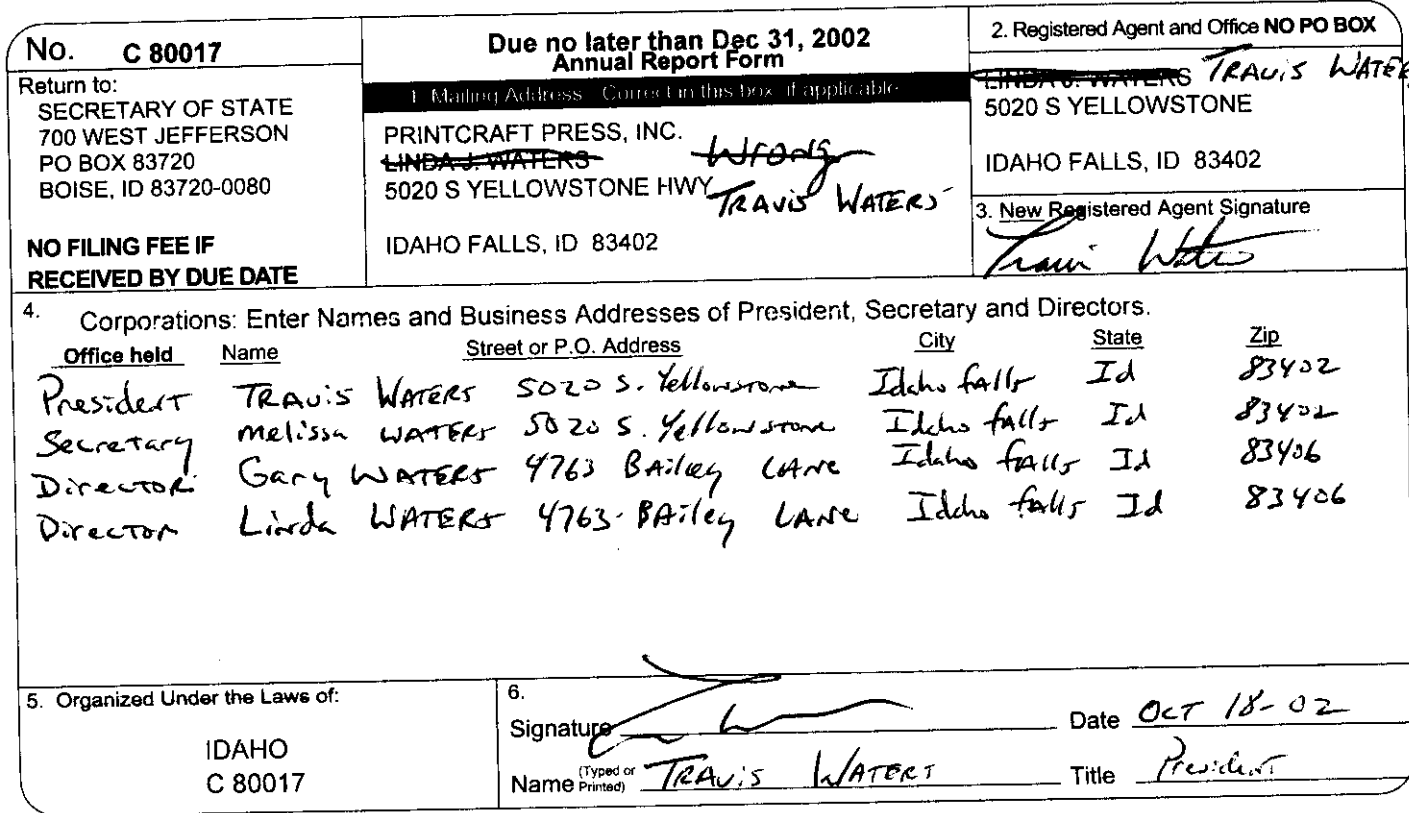 No. C 80017
Return to:
SECRETARY OF STATE
700 WEST JEFFERSON
PO BOX 83720
BOISE, ID 83720-0080
NO FILING FEE IF
RECEIVED BY DUE DATE
Due no later than Dec 31, 2002
Annual Report Form
1. Mailing Address Correct in this box if applicable
PRINTCRAFT PRESS, INC.
LINDA J. WATERS Wrong
5020 S YELLOWSTONE HWY TRAVIS WATERS
IDAHO FALLS, ID 83402
2. Registered Agent and Office NO PO BOX
LINDA J. WATERS TRAVIS WATE
5020 S YELLOWSTONE
IDAHO FALLS, ID 83402
3. New Registered Agent Signature
Travis Waters
4. Corporations: Enter Names and Business Addresses of President, Secretary and Directors.
Office held Name Street or P.O. Address City State Zip
President TRAVIS WATERS 5020 S. Yellowstone Idaho falls Id 83402
Secretary Melissa WATERS 5020 S. Yellowstone Idaho falls Id 83402
Director Gary WATERS 4763 BAiley LANE Idaho fAlls Id 83406
Director Linda WATERS 4763 BAiley LANE Idaho falls Id 83406
5. Organized Under the Laws of:
IDAHO
C 80017
6.
Signature Date OCT 18-02
Name (Typed or Printed) TRAVIS WATERS Title President